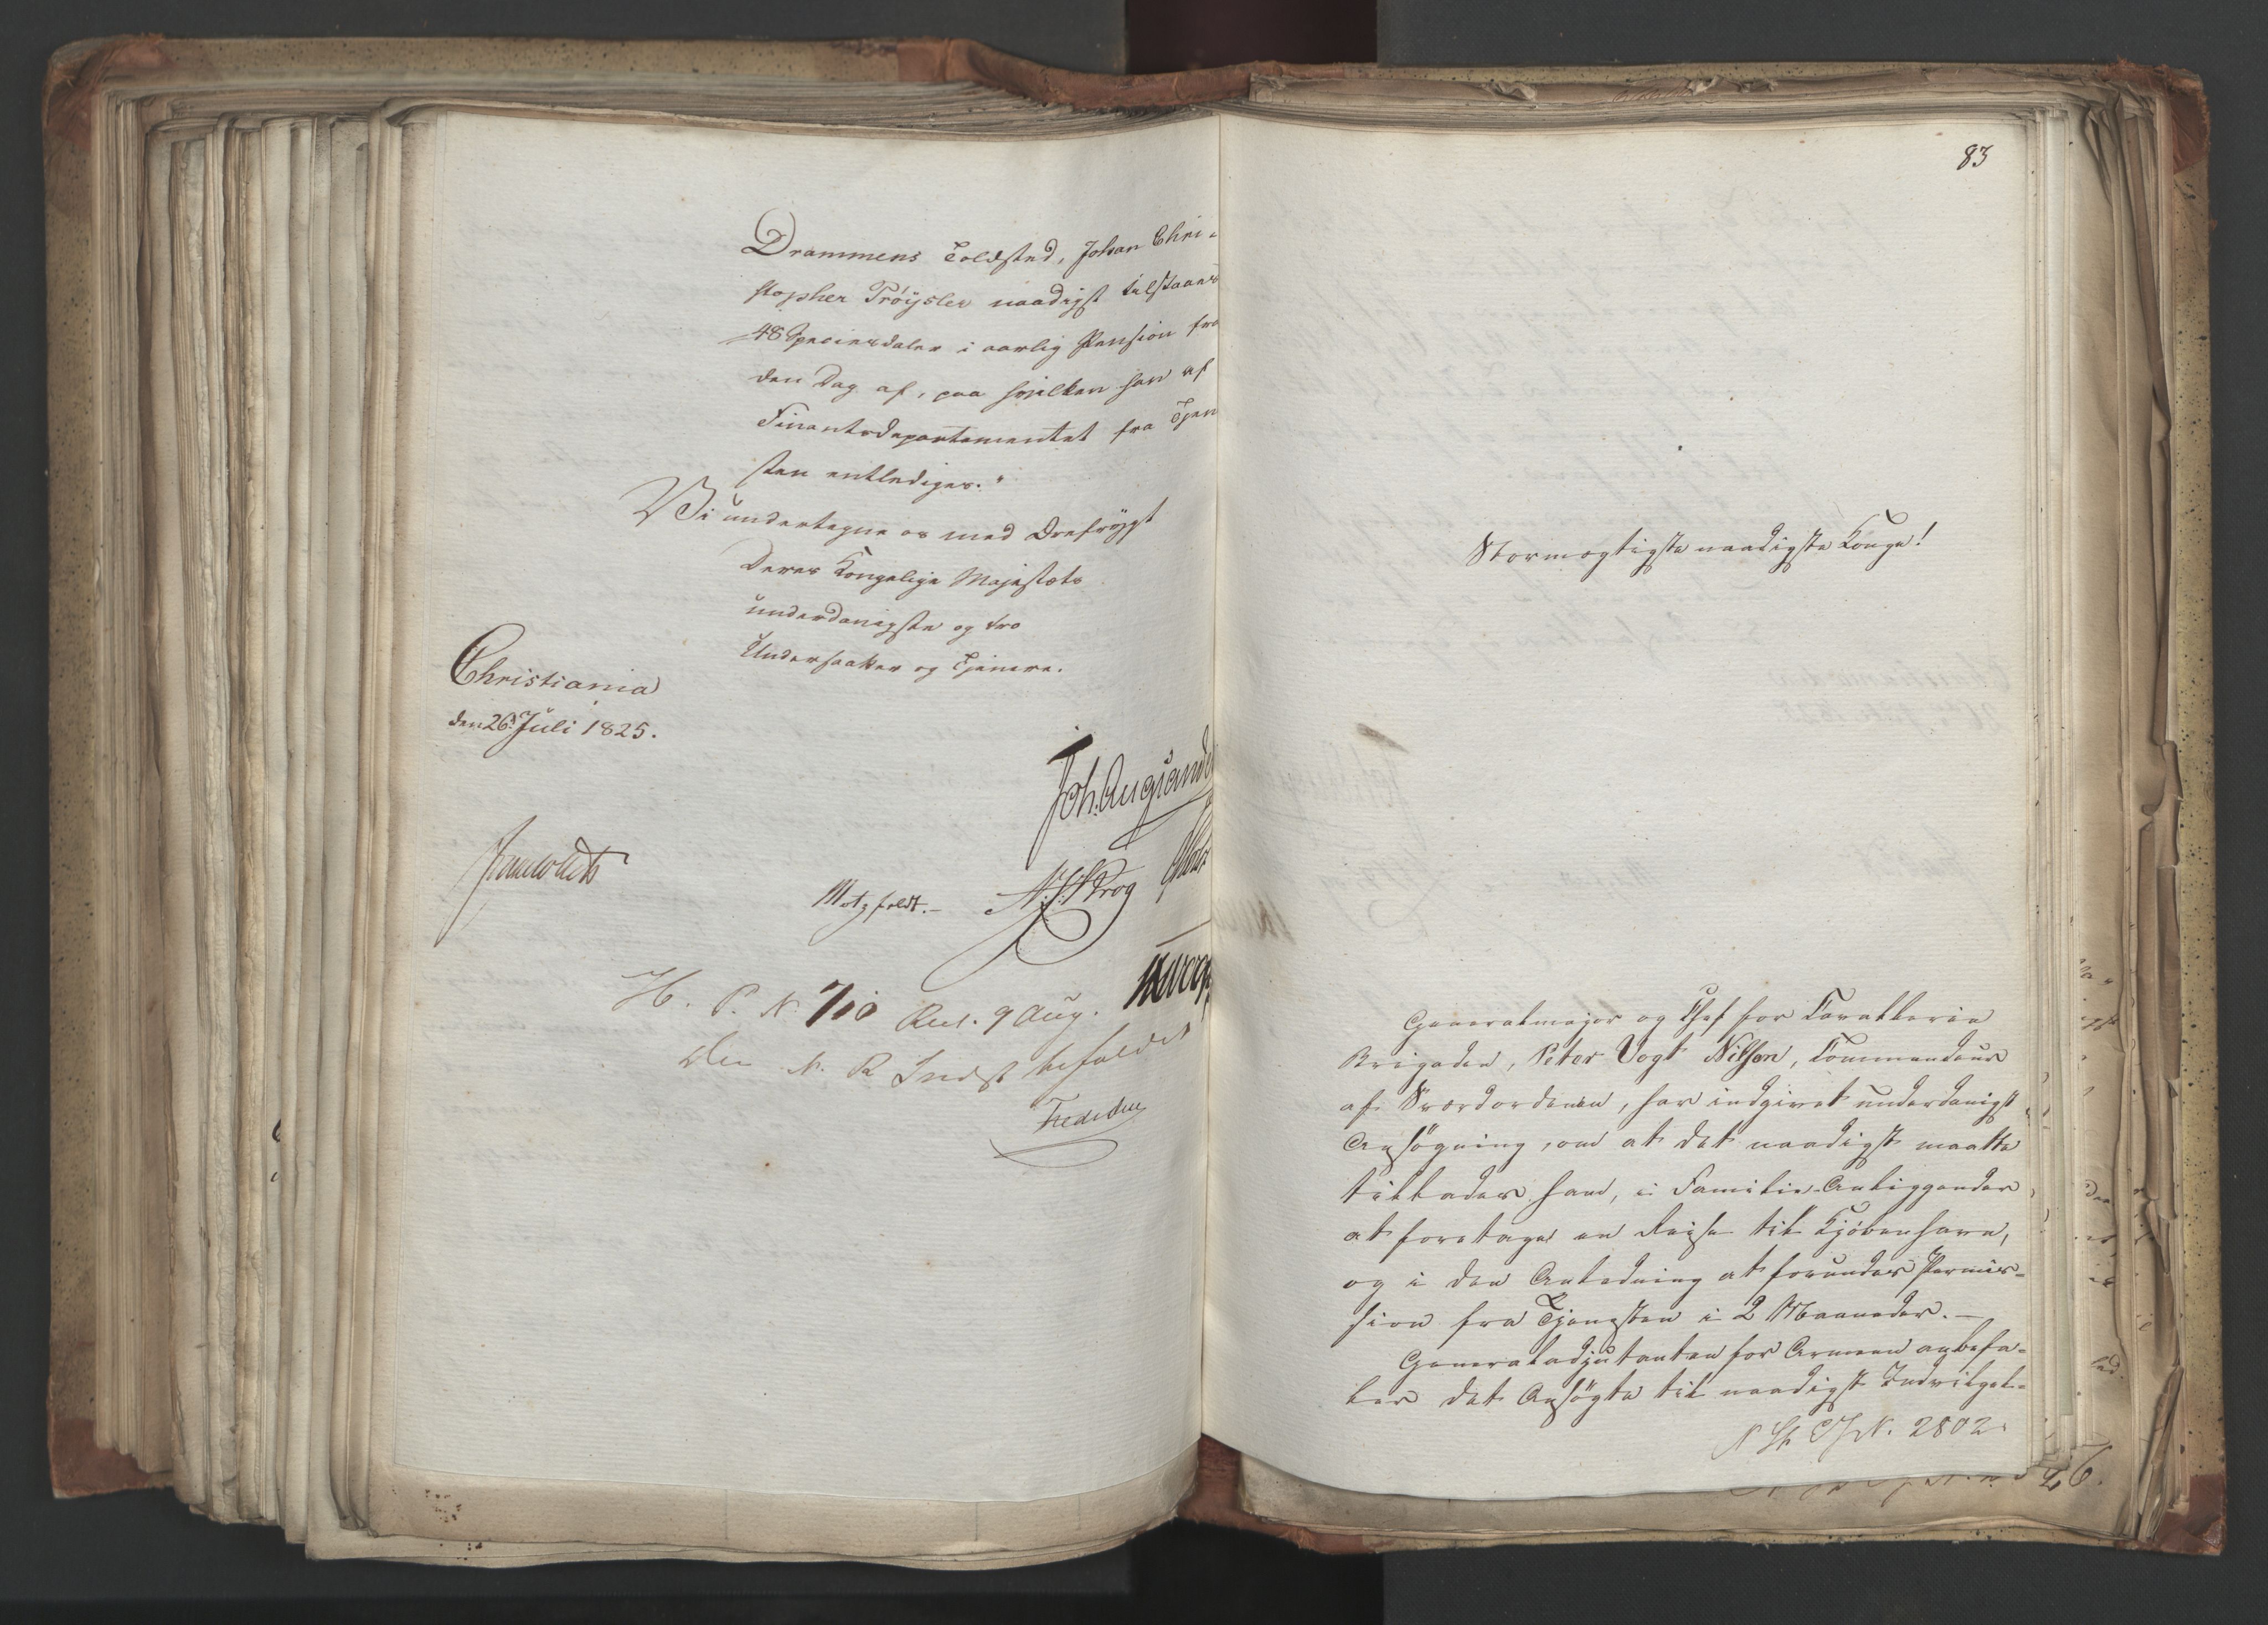 Drammens Toldsted, Johan Chri-
stopher Tröysler naadigst tilstaaes
48 Speciesdaler i aarlig Pension fra
den Dag af, paa hvilken han af
Finantsdepartementet fra Tjen
sten entlediges."
Vi undertegne os med Ærefrÿgt
Deres Kongelige Majestæts
underdanigste og tro
Undersaatter og Tjenere.
Christiania
den 26d Juli 1825.
Joh. Aug Sande
Motzfeldt.- 
H. P. N. 710 Ref. 9 Aug.
Den N. R. Indst bifaldes
83
Stormægtigste naadigste Konge!
Generalmajor og Chef for Cavallerie
Brigaden, Peter Vogt Nilsen, Commandeur
af Sværdordenen, har indgivet underdanigst
Ansögning, om at det naadigst maatte
tillades ham, i Familie-Anliggender
at foretage en Reise til Kjöbenhavn,
og i den Anledning at forundes Permis-
sion fra Tjenesten i 2 Maaneder.—
Generaladjutanten for Armeen anbefa-
ler det Ansögte til naadigst Indvilgel-
N St E J N. 2802.
26.